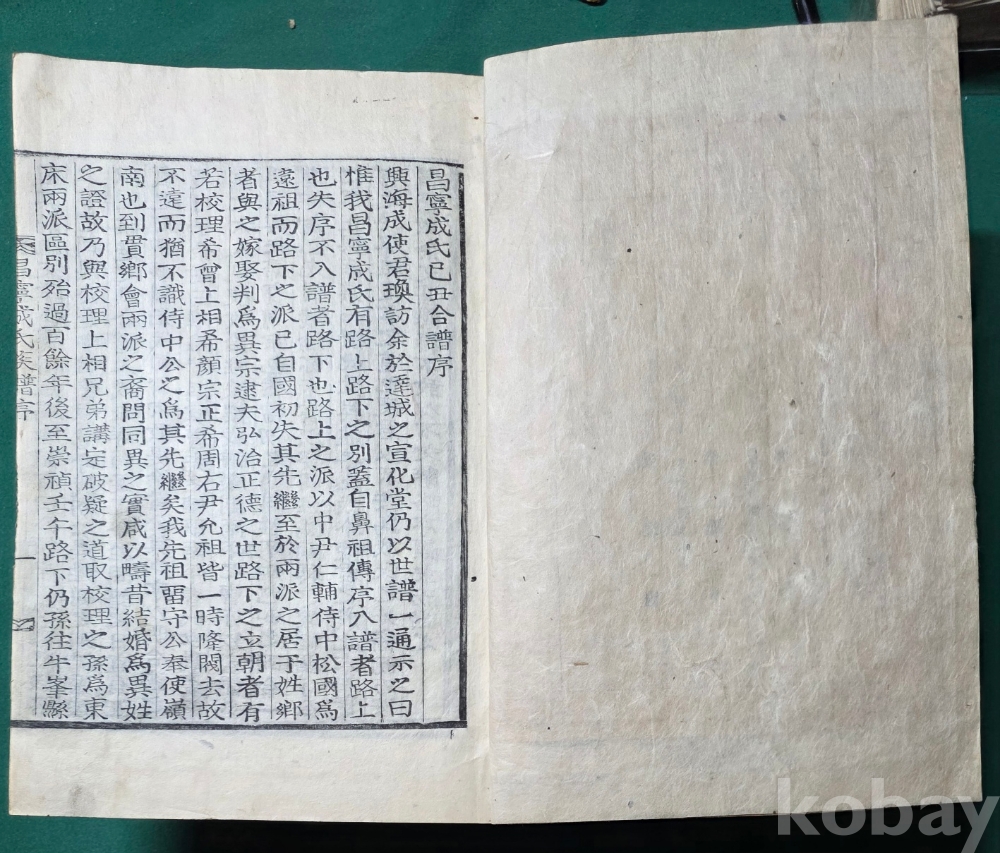 昌寧成氏己丑合譜序
興海成使君瑍訪余於達城之宣化堂仍以世譜一通示之曰
惟我昌寧成氏有路上路下之別蓋自鼻祖傳序入譜者路上
也失序不入譜者路下也路上之派以中尹仁輔侍中松國為
遠祖而路下之派已自國初失其先繼至於兩派之居于姓鄉
者與之嫁娶判為異宗逮夫弘治正德之世路下之立朝者有
若校理希曾上相希顔宗正希周右尹允祖皆一時隆閥去故
不遠而猶不識侍中公之為其先繼矣我先祖留守公奉使嶺
南也到貫鄉會兩派之裔問同異之實咸以疇昔結婚為異姓
之證故乃與校理上相兄弟講定破疑之道取校理之孫為東
床兩派區別殆過百餘年後至崇禎壬午路下仍孫往牛峯縣
昌寧成氏族譜序
一
kobay